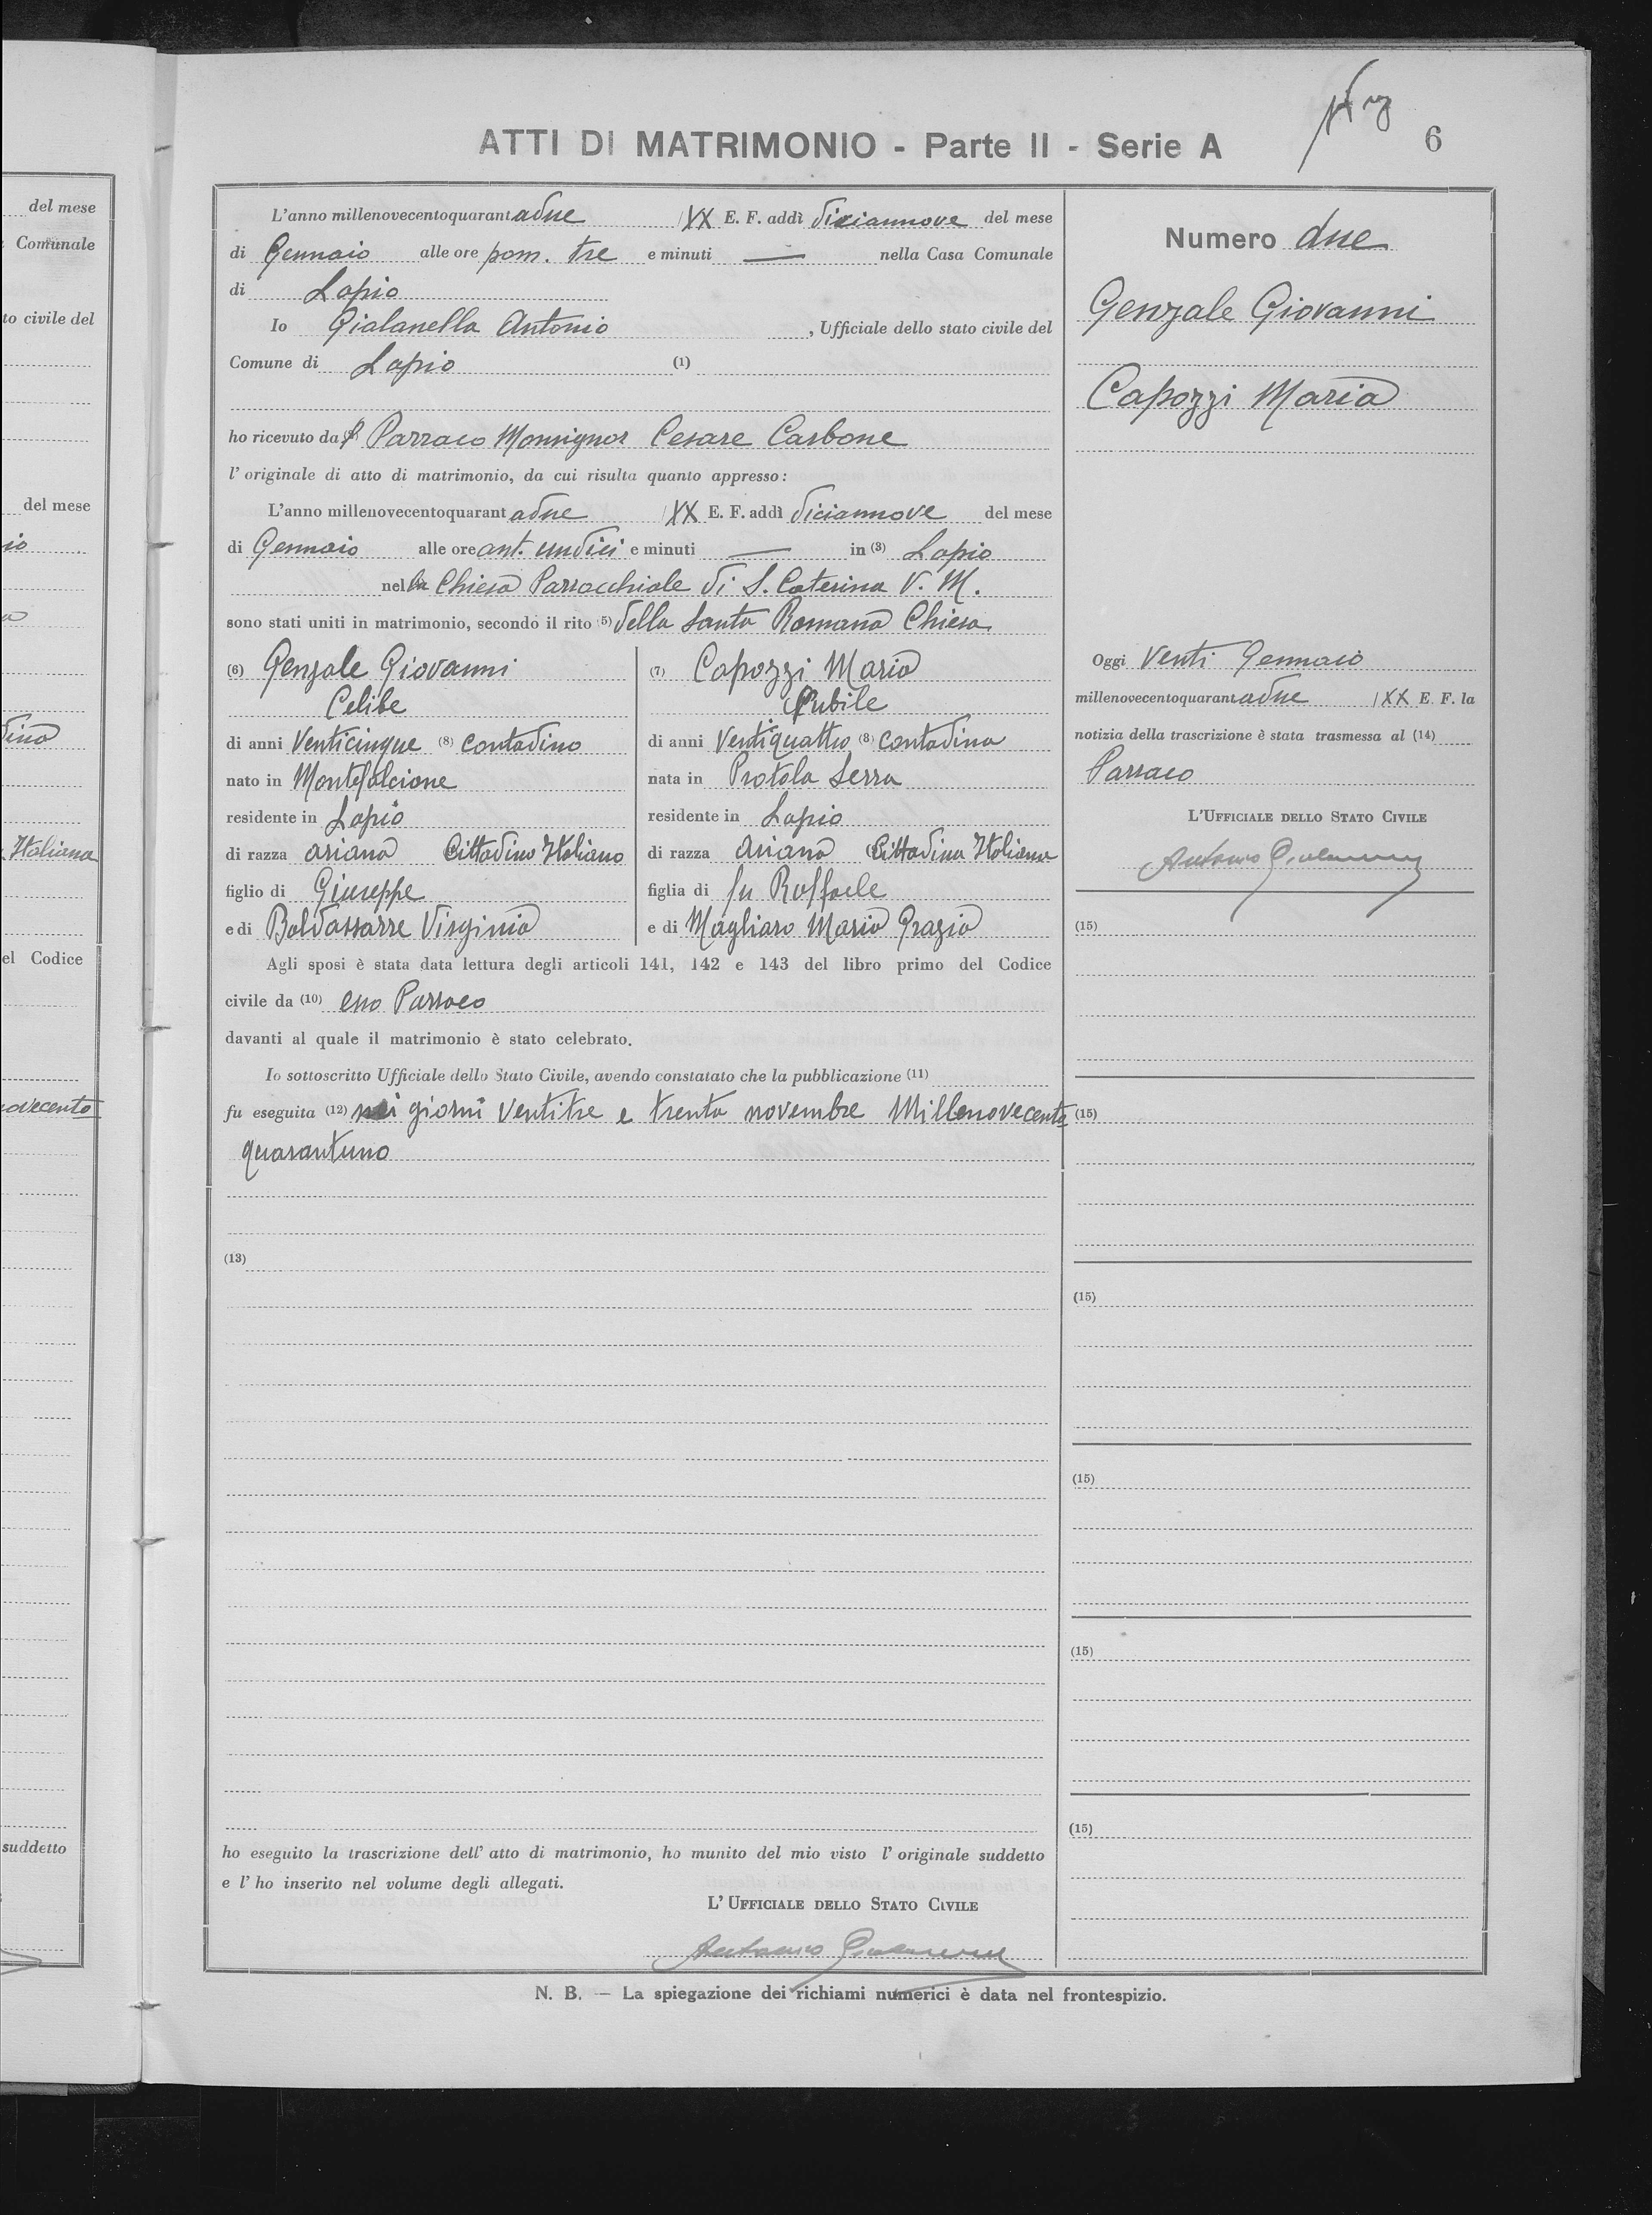 del mese
Comunale
to civile del
del mese
io
a
dino
Italiana
el Codice
ovecento
suddetto
6
ATTI DI MATRIMONIO - Parte II - Serie A
L'anno millenovecentoquarantadue XX E. F. addì diciannove del mese
di Gennaio alle ore pom. tre e minuti — nella Casa Comunale
di Lapio
Io Gialanella Antonio , Ufficiale dello stato civile del
Comune di Lapio (1)
ho ricevuto dal Parroco Monsignor Cesare Carbone
l' originale di atto di matrimonio, da cui risulta quanto appresso:
L'anno millenovecentoquarantadue XX E. F. addì diciannove del mese
di Gennaio alle ore ant. undici e minuti — in (3) Lapio
nella Chiesa Parrocchiale di S. Caterina V. M.
sono stati uniti in matrimonio, secondo il rito (5) della Santa Romana Chiesa
(6) Genzale Giovanni
Celibe
di anni Venticinque (8) contadino
nato in Montefalcione
residente in Lapio
di razza ariana Cittadino Italiano
figlio di Giuseppe
e di Baldassarre Virginia
(7) Capozzi Maria
Nubile
di anni Ventiquattro (8) contadina
nata in Pratola Serra
residente in Lapio
di razza Ariana Cittadina Italiana
figlia di fu Raffaele
e di Magliaro Maria Grazia
Agli sposi è stata data lettura degli articoli 141, 142 e 143 del libro primo del Codice
civile da (10) esso Parroco
davanti al quale il matrimonio è stato celebrato.
Io sottoscritto Ufficiale dello Stato Civile, avendo constatato che la pubblicazione (11)
fu eseguita (12) nei giorni ventitre e trenta novembre Millenovecento
quarantuno
(13)
ho eseguito la trascrizione dell' atto di matrimonio, ho munito del mio visto l' originale suddetto
e l' ho inserito nel volume degli allegati.
L' UFFICIALE DELLO STATO CIVILE
Antonio Gialanella
Numero due
Genzale Giovanni
Capozzi Maria
Oggi Venti Gennaio
millenovecentoquarantadue XX E. F. la
notizia della trascrizione è stata trasmessa al (14)
Parroco
L'UFFICIALE DELLO STATO CIVILE
Antonio Gialanella
(15)
(15)
(15)
(15)
(15)
(15)
N. B. — La spiegazione dei richiami numerici è data nel frontespizio.